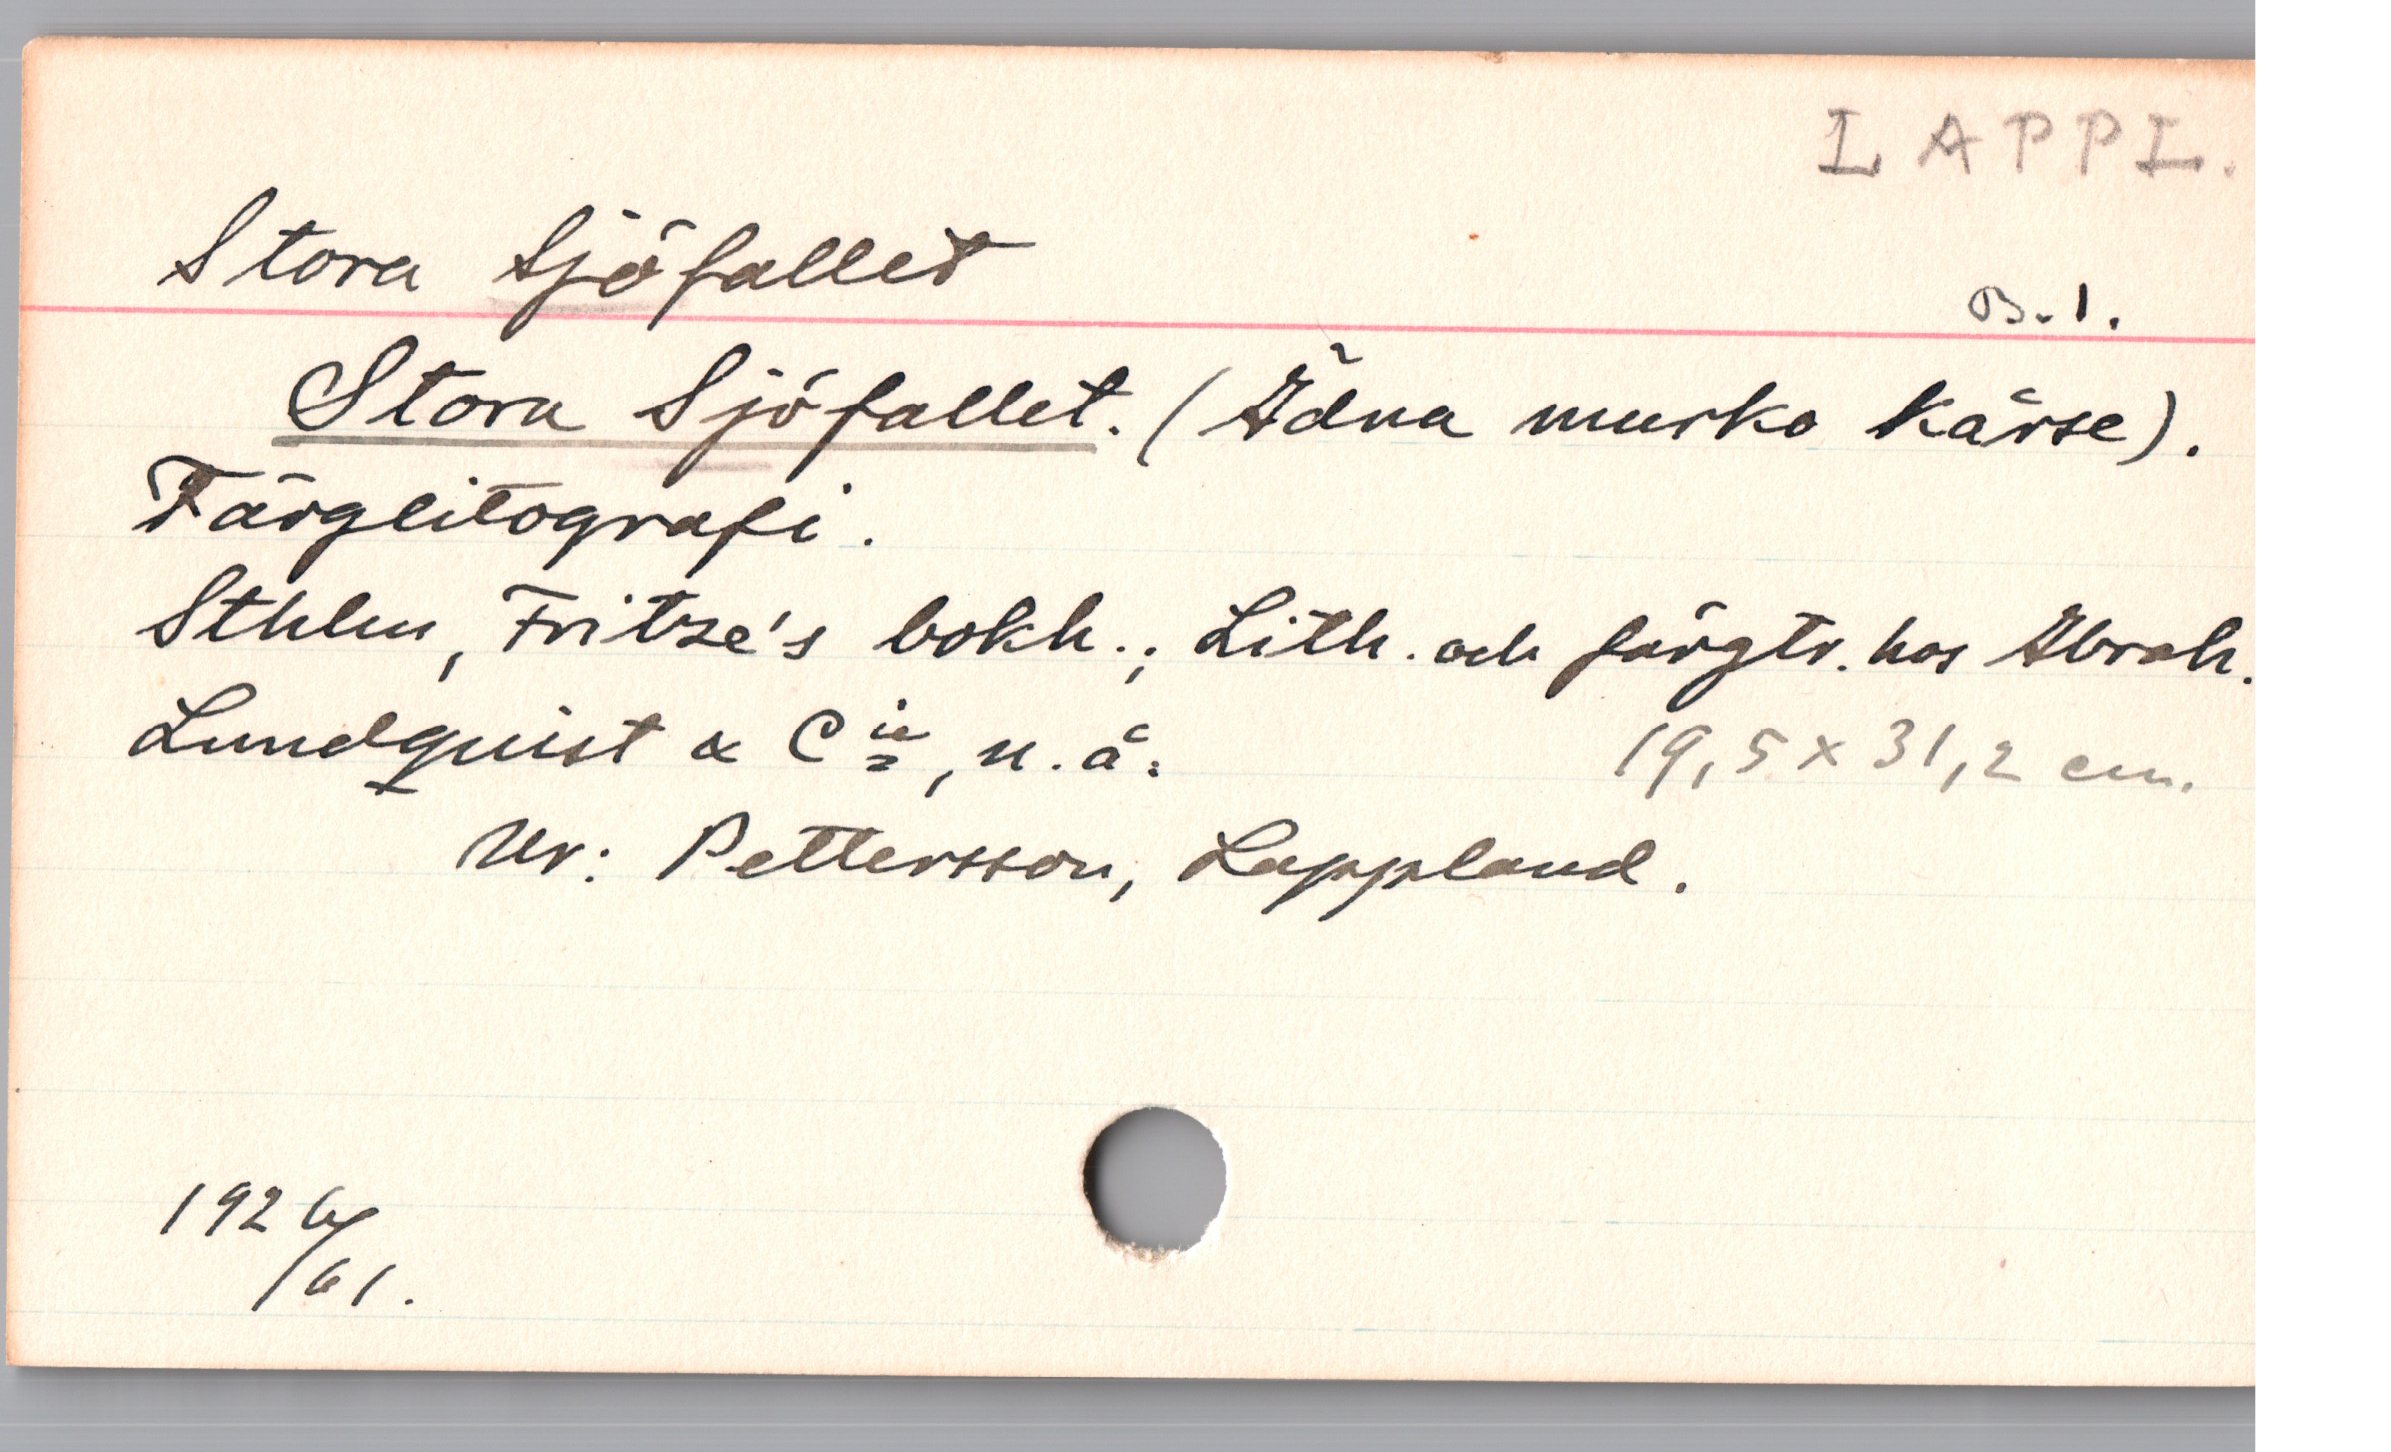 LAPPL.
Stora Sjöfallet
B.1.
Stora Sjöfallet. (Ädna musko kårse).
Färglitografi.
Sthlm, Fritze's bokh.; Lith. och färgtr. hos Abrah.
Lundquist & Cie, u.å.
19,5 x 31,2 cm.
Ur: Pettersson, Lappland.
192 6/
/61.